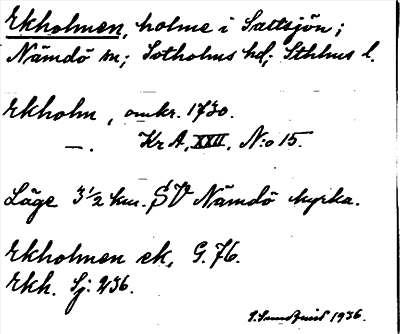 Ekholmen, holme i Saltsjön;
Nämdö sn; Sotholms hd; Sthlms l.
Ekholm, omkr. 1730.
—. Kr A, XXII, N:o 15.
Läge 3 1/2 km. SV Nämdö kyrka.
Ekholmen ek, G. 76.
Ekh. Sj: 236.
1936.